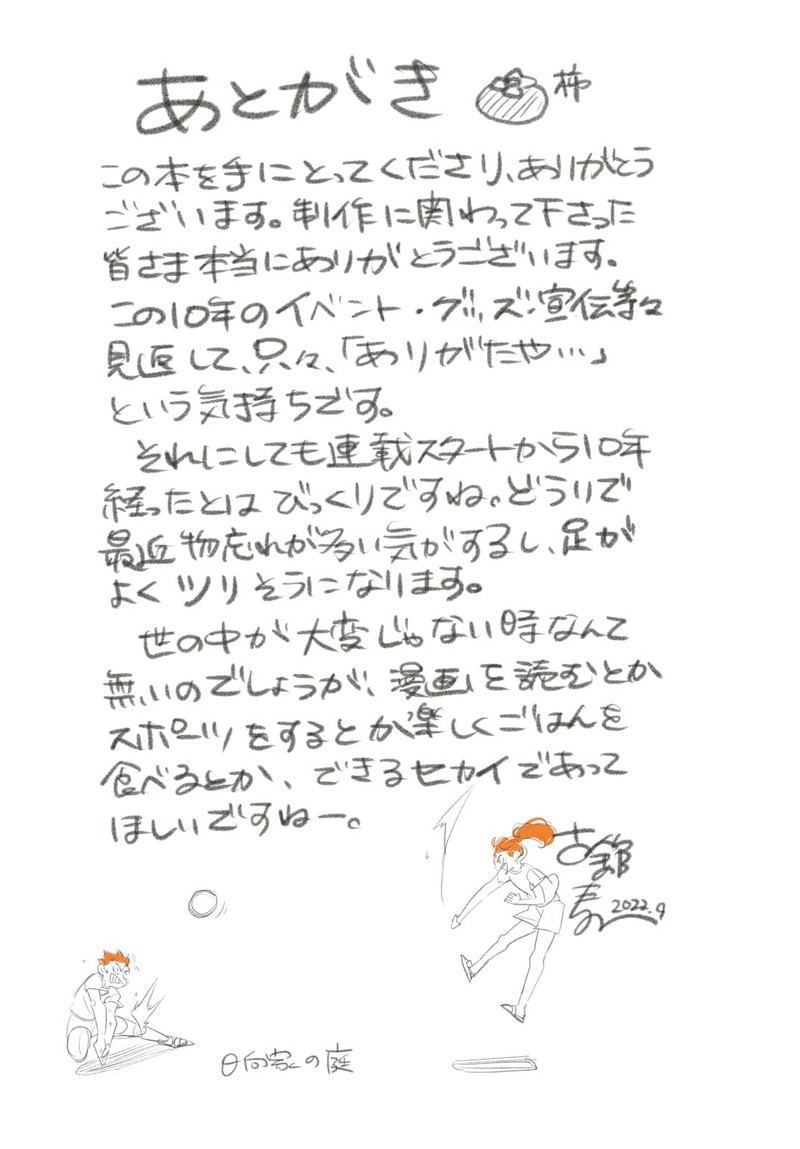 あとがき 柿
この本を手にとってくださり、ありがとう
ございます。制作に関わって下さった
皆さま本当にありがとうございます。
この10年のイベント・グッズ・宣伝等々
見返して、只々、「ありがたや…」
という気持ちです。
それにしても連載スタートから10年
経ったとはびっくりですね。どうりで
最近物忘れが多い気がするし、足が
よくツリそうになります。
世の中が大変じゃない時なんて
無いのでしょうが、漫画を読むとか
スポーツをするとか楽しくごはんを
食べるとか、できるセカイであって
ほしいですねー。
古舘
春
2022.9
日向家の庭